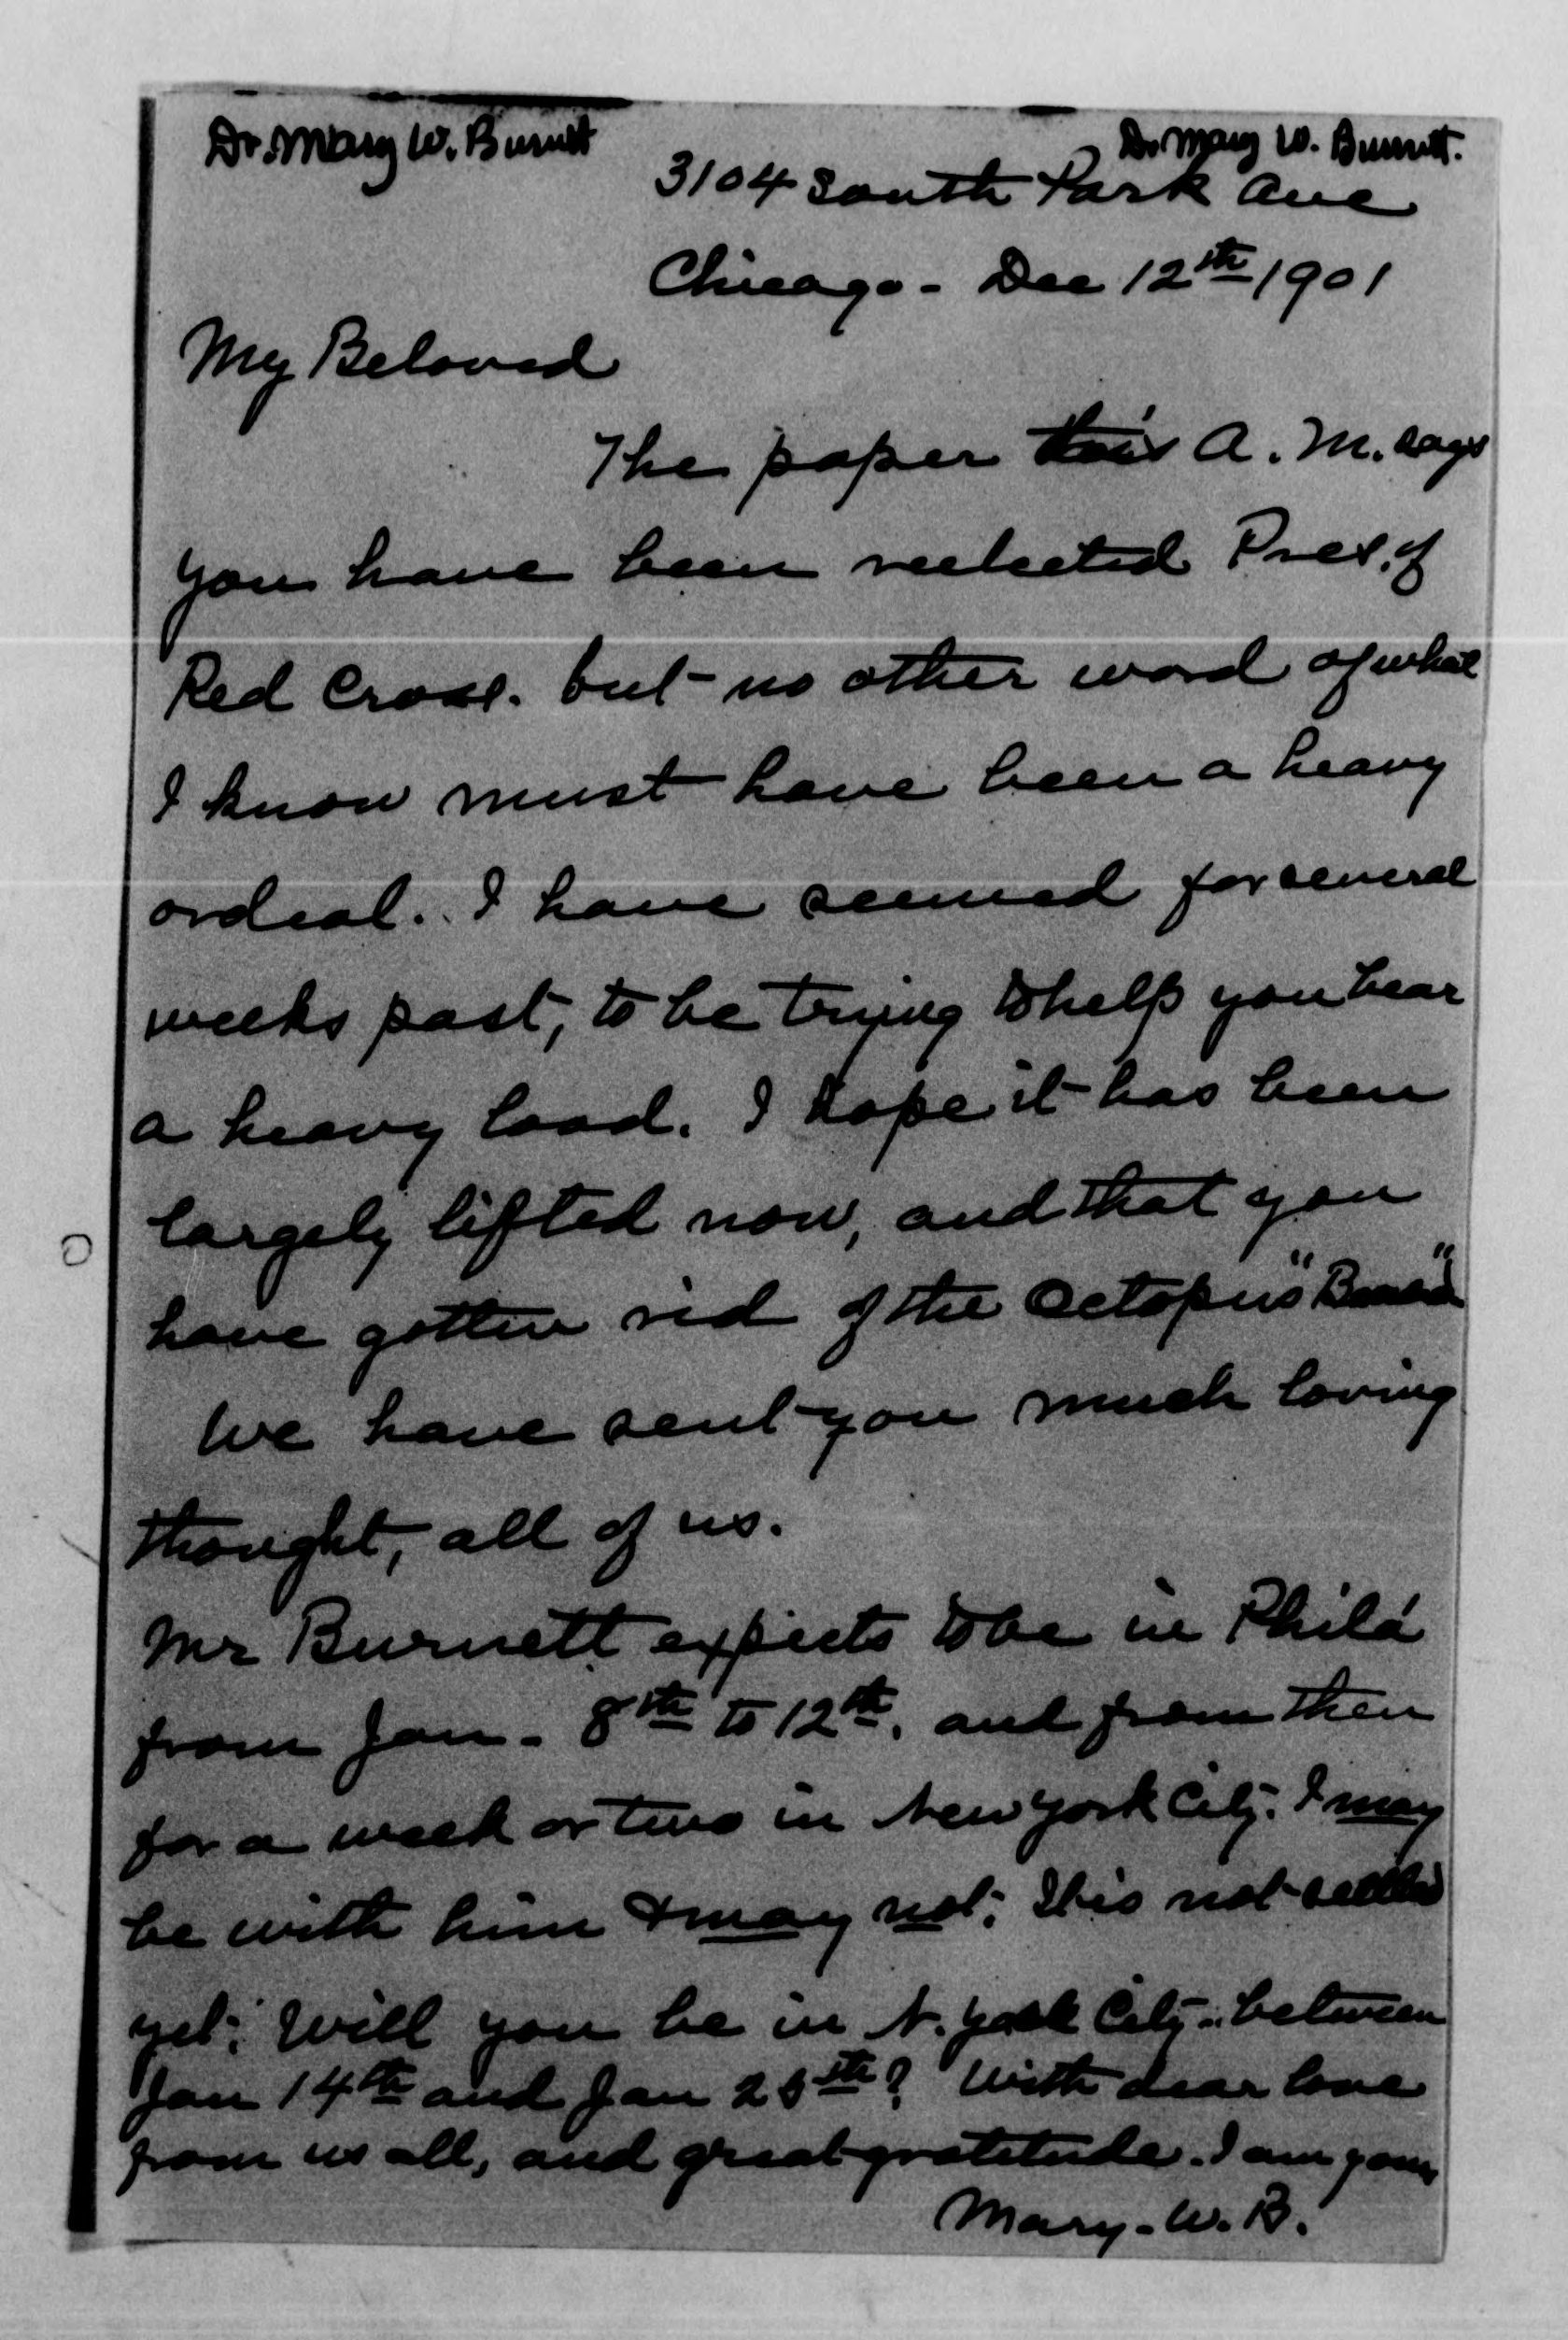 Dr. Mary W. Burnett
Dr. Mary W. Burnett.
3104 South Park Ave
Chicago - Dec 12th 1901
My Beloved
The paper this A. M. says
you have been reelected Pres. of
Red Cross. but no other word of what
I know must have been a heavy
ordeal. I have seemed for several
weeks past, to be trying to help you bear
a heavy load. I hope it has been
largely lifted now, and that you
have gotten rid of the Octopus "Board"
We have sent you much loving
thought, all of us.
Mr Burnett expects to be in Phila
from Jan - 8th to 12th. and from then
for a week or two in New York City. I may
be with him & may not; It is not settled
yet; Will you be in N. York City - between
Jan 14th and Jan 25th? With dear love
from us all, and great gratitude. I am yours
Mary - W. B.